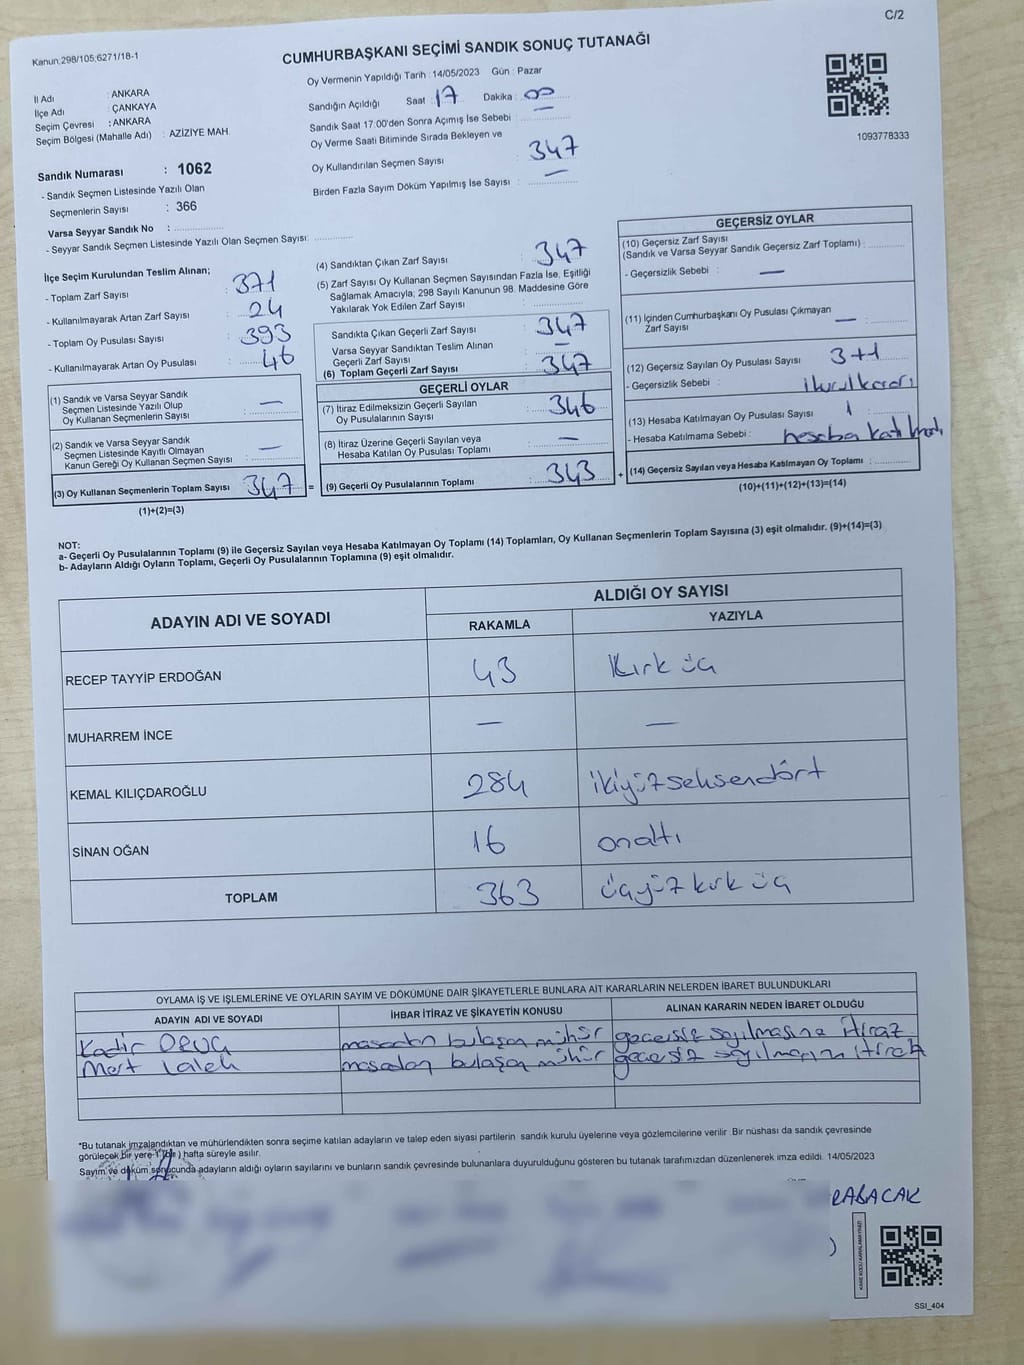 C/2
Kanun.298/105;6271/18-1
CUMHURBAŞKANI SEÇİMİ SANDIK SONUÇ TUTANAĞI
Oy Vermenin Yapıldığı Tarih : 14/05/2023 Gün : Pazar
İl Adı : ANKARA
İlçe Adı : ÇANKAYA
Seçim Çevresi : ANKARA
Seçim Bölgesi (Mahalle Adı) : AZİZİYE MAH.
Sandığın Açıldığı Saat : 17 Dakika : 00
Sandık Saat 17:00'den Sonra Açımış İse Sebebi : —
Oy Verme Saati Bitiminde Sırada Bekleyen ve
Oy Kullandırılan Seçmen Sayısı : 347
Birden Fazla Sayım Döküm Yapılmış İse Sayısı : —
1093778333
Sandık Numarası : 1062
- Sandık Seçmen Listesinde Yazılı Olan
Seçmenlerin Sayısı : 366
Varsa Seyyar Sandık No :
- Seyyar Sandık Seçmen Listesinde Yazılı Olan Seçmen Sayısı:
İlçe Seçim Kurulundan Teslim Alınan;
- Toplam Zarf Sayısı : 371
- Kullanılmayarak Artan Zarf Sayısı : 24
- Toplam Oy Pusulası Sayısı : 393
- Kullanılmayarak Artan Oy Pusulası : 46
(1) Sandık ve Varsa Seyyar Sandık
Seçmen Listesinde Yazılı Olup
Oy Kullanan Seçmenlerin Sayısı : —
(2) Sandık ve Varsa Seyyar Sandık
Seçmen Listesinde Kayıtlı Olmayan
Kanun Gereği Oy Kullanan Seçmen Sayısı : —
(3) Oy Kullanan Seçmenlerin Toplam Sayısı : 347 =
(1)+(2)=(3)
(4) Sandıktan Çıkan Zarf Sayısı : 347
(5) Zarf Sayısı Oy Kullanan Seçmen Sayısından Fazla İse, Eşitliği
Sağlamak Amacıyla; 298 Sayılı Kanunun 98. Maddesine Göre
Yakılarak Yok Edilen Zarf Sayısı :
Sandıkta Çıkan Geçerli Zarf Sayısı : 347
Varsa Seyyar Sandıktan Teslim Alınan
Geçerli Zarf Sayısı : —
(6) Toplam Geçerli Zarf Sayısı : 347
GEÇERLİ OYLAR
(7) İtiraz Edilmeksizin Geçerli Sayılan
Oy Pusulalarının Sayısı : 346
(8) İtiraz Üzerine Geçerli Sayılan veya
Hesaba Katılan Oy Pusulası Toplamı : —
(9) Geçerli Oy Pusulalarının Toplamı : 343 +
GEÇERSİZ OYLAR
(10) Geçersiz Zarf Sayısı
(Sandık ve Varsa Seyyar Sandık Geçersiz Zarf Toplamı) :
- Geçersizlik Sebebi : —
(11) İçinden Cumhurbaşkanı Oy Pusulası Çıkmayan
Zarf Sayısı : —
(12) Geçersiz Sayılan Oy Pusulası Sayısı : 3+1
- Geçersizlik Sebebi :
(13) Hesaba Katılmayan Oy Pusulası Sayısı : 1
- Hesaba Katılmama Sebebi : hesaba katılmadı
(14) Geçersiz Sayılan veya Hesaba Katılmayan Oy Toplamı :
(10)+(11)+(12)+(13)=(14)
NOT:
a- Geçerli Oy Pusulalarının Toplamı (9) ile Geçersiz Sayılan veya Hesaba Katılmayan Oy Toplamı (14) Toplamları, Oy Kullanan Seçmenlerin Toplam Sayısına (3) eşit olmalıdır. (9)+(14)=(3)
b- Adayların Aldığı Oyların Toplamı, Geçerli Oy Pusulalarının Toplamına (9) eşit olmalıdır.
ADAYIN ADI VE SOYADI ALDIĞI OY SAYISI
RAKAMLA YAZIYLA
RECEP TAYYİP ERDOĞAN 43 Kırk üç
MUHARREM İNCE — —
KEMAL KILIÇDAROĞLU 284 ikiyüzseksendört
SİNAN OĞAN 16 onaltı
TOPLAM 363 üçyüz kırk üç
OYLAMA İŞ VE İŞLEMLERİNE VE OYLARIN SAYIM VE DÖKÜMÜNE DAİR ŞİKAYETLERLE BUNLARA AİT KARARLARIN NELERDEN İBARET BULUNDUKLARI
ADAYIN ADI VE SOYADI İHBAR İTİRAZ VE ŞİKAYETİN KONUSU ALINAN KARARIN NEDEN İBARET OLDUĞU
Kadir ORUÇ masadan bulaşan mühür geçersiz sayılmasına itiraz
Mert Laleh masadan bulaşan mühür geçersiz sayılmasına itiraz
*Bu tutanak imzalandıktan ve mühürlendikten sonra seçime katılan adayların ve talep eden siyasi partilerin sandık kurulu üyelerine veya gözlemcilerine verilir. Bir nüshası da sandık çevresinde
görülecek bir yere 1 (bir) hafta süreyle asılır.
Sayım ve döküm sonucunda adayların aldığı oyların sayılarını ve bunların sandık çevresinde bulunanlara duyurulduğunu gösteren bu tutanak tarafımızdan düzenlenerek imza edildi. 14/05/2023
RABACAK
SSI_404